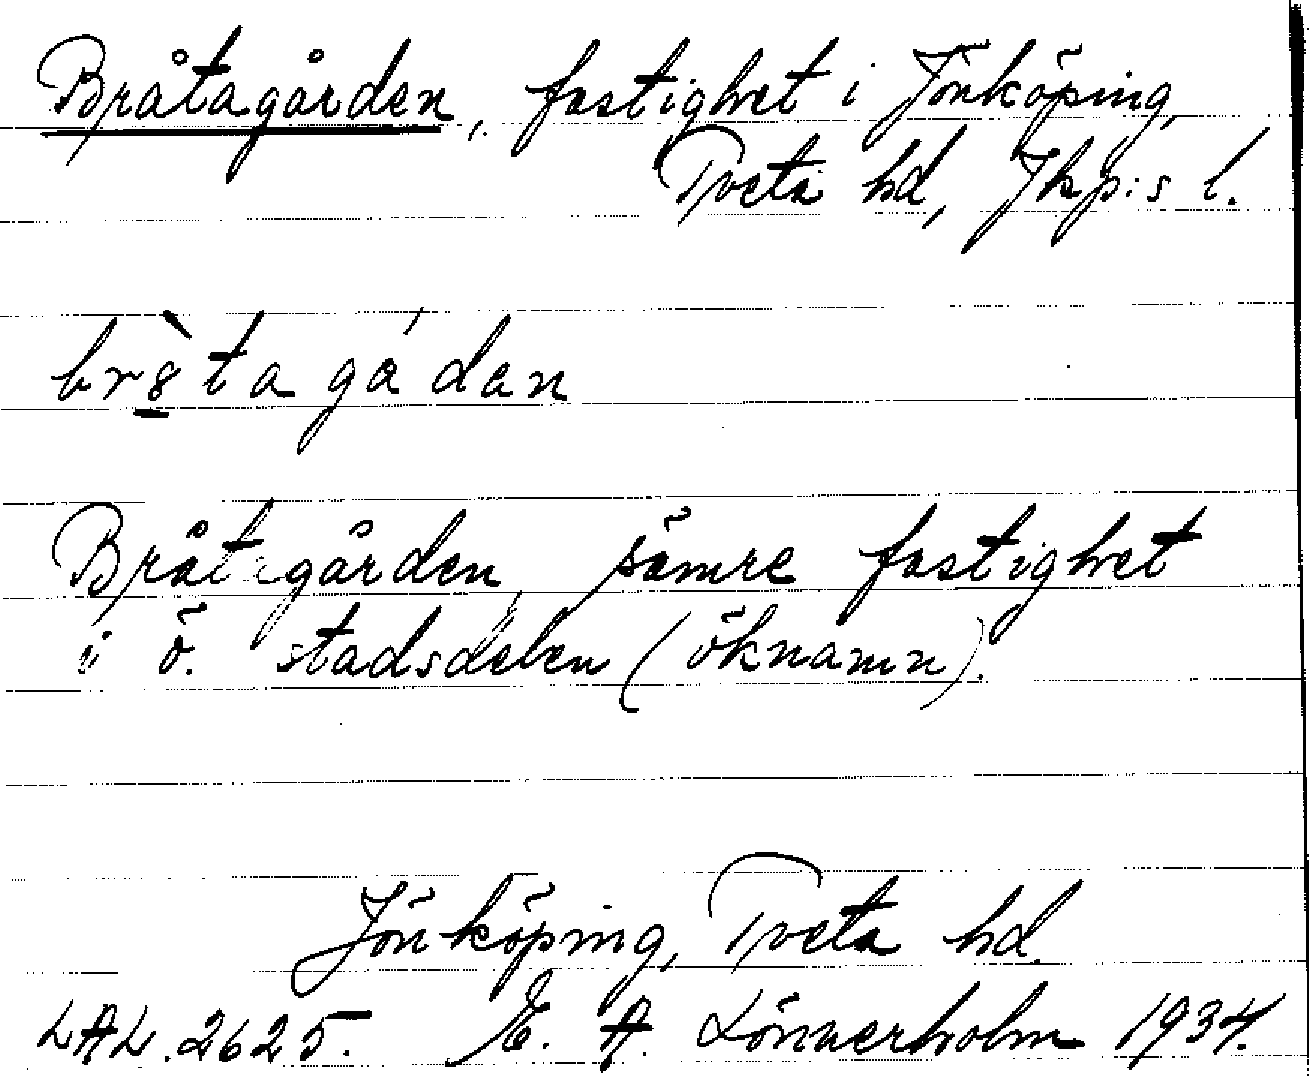 Bråtagården, fastighet i Jönköping,
Tveta hd, Jkp:s l.
br8̠̀tagá'dan
Bråtagården, sämre fastighet
i ö. stadsdelen (öknamn).
Jönköping, Tveta hd.
LAL.2625. E. A. Lönnerholm 1934.